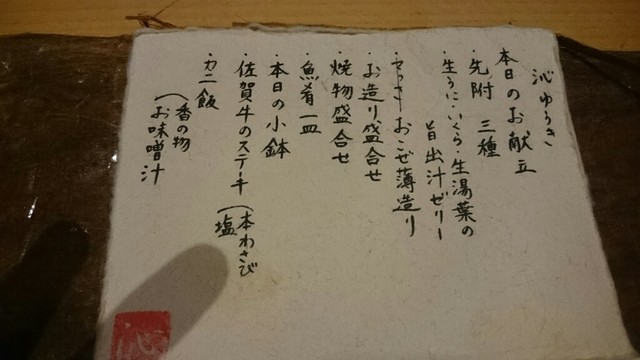 ゆうき
本日のお献立
・先附 三種
・生うに・いくら・生湯葉の
旨出汁ゼリー
おこぜ薄造り
・お造り盛合せ
・焼物盛合せ
・魚肴一皿
・本日の小鉢
・佐賀牛のステーキ(本わさび
塩
・カニ飯
(香の物
お味噌汁